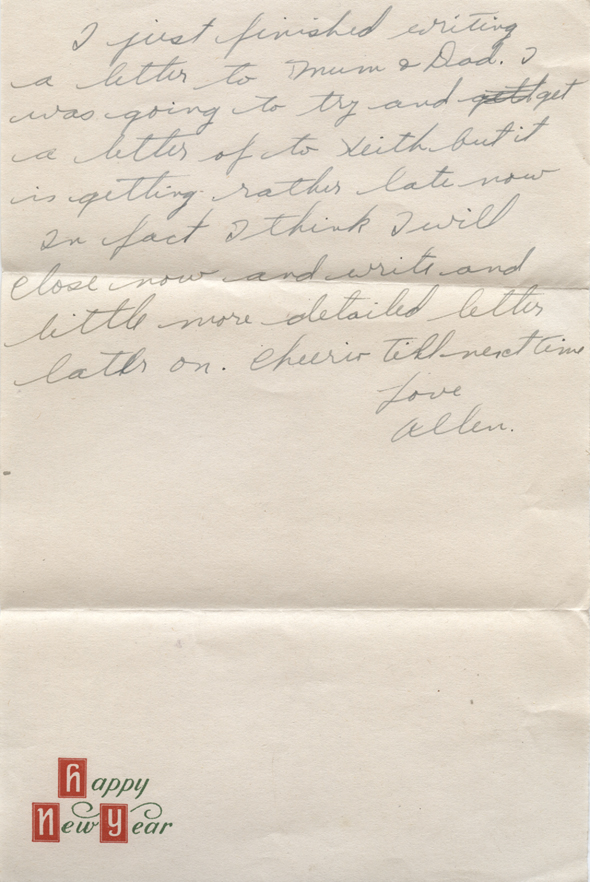 I just finished writing
a letter to Mum & Dad. I
was going to try and get
a letter of to Keith but it
is getting rather late now
In fact I think I will
close now and write and
little more detailed letter
later on. Cheerio till next time
Love
Allen.
Happy
New Year